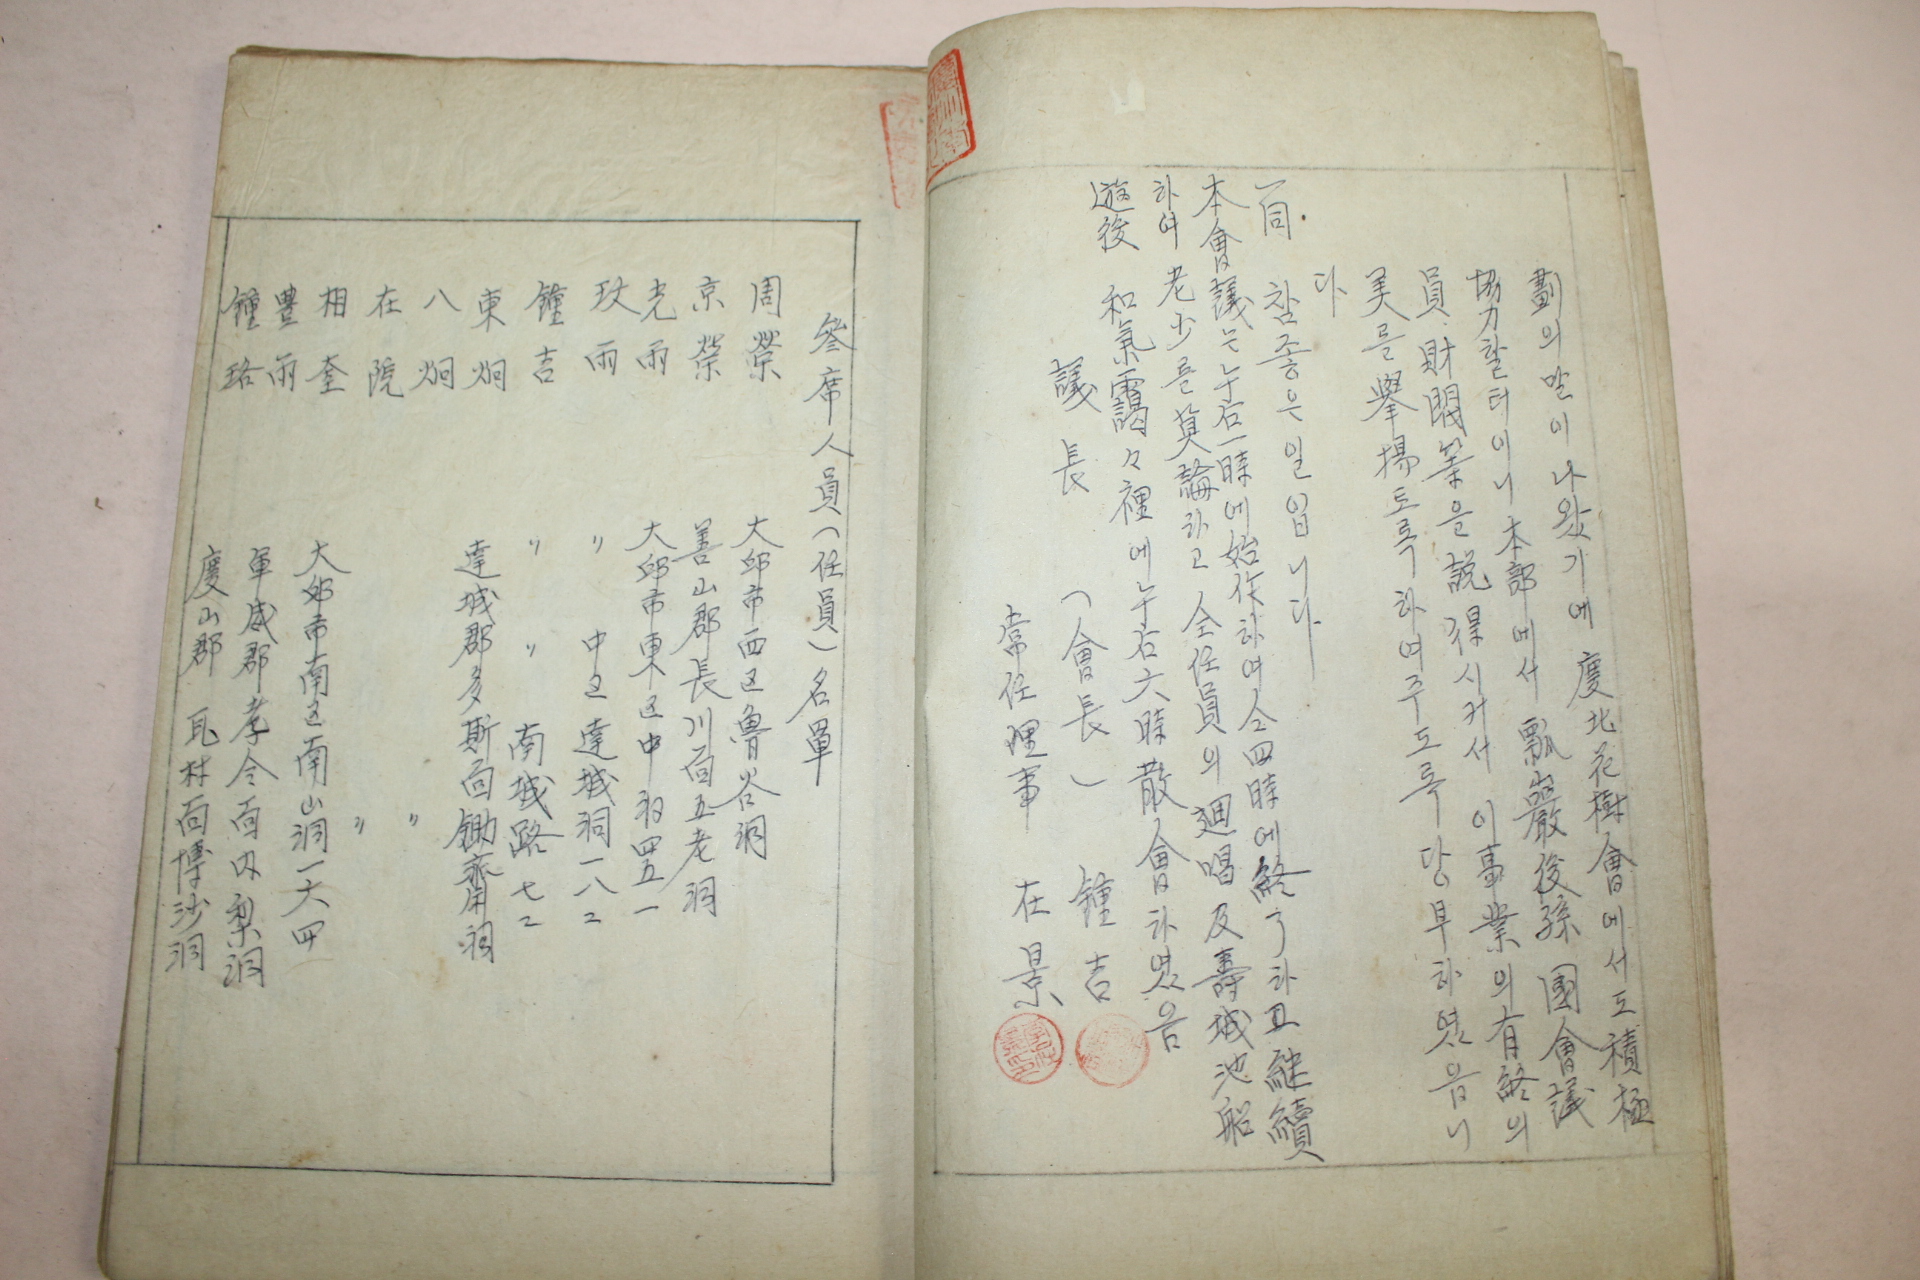 劃의 말이나왔기에 慶北花樹會에서도 積極
協力할터이니 本部에서 瓢巖後孫 國會議
員 財閥等을 說得시커서 이事業의 有終의
美를 擧揚토록 하여주도록 당부하였읍니
다
一同 참좋은일입니다
本會議는 누右一時에 始作하여 仝四時에 終了하고 繼續
하여 老少를 莫論하고 仝任員의 廻唱 及 壽城池船
遊後 和氣靄々裡에 누右六時 散會하였음
議長 (會長) 鍾吉
常任理事 在景
參席人員(任員)名單
周榮 大邱市西区魯谷洞
京榮 善山郡長川面五老洞
光雨 大邱市東区中洞四五一
玟雨 〃 中区達城洞一八二
鍾吉 〃 〃 南城路七二
東炯 達城郡多斯面鋤齋洞
八炯 〃
在院 〃
相奎 大邱市南区南山洞一六四
豊雨 軍威郡孝令面内梨洞
鍾珞 慶山郡 瓦村面博沙洞